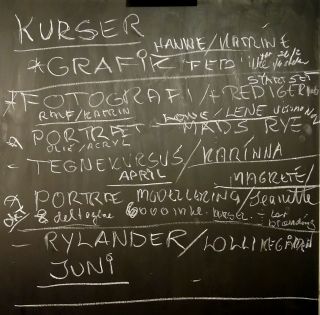 KURSER
HANNE/KATRINE
*GRAFIK FED
STARTSET
*FOTOGRAFI/+REDIGER
RALF/KATRIN /LENE
- PORTRÆT MADS RYE
OLIE/ACRYL
- TEGNEKURSUS/KARINNA
APRIL MAGRETE/
- PORTRÆ MODELLERING/Jeanette
8 deltagere 6000 inkl.
- RYLANDER/LOLLIKEGÅRDEN
JUNI